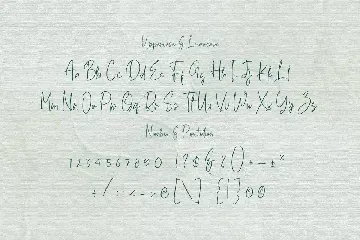 Uppercase & Lowercase
Aa Bb Cc Dd Ee Ff Gg Hh Ii Jj Kk Ll
Mm Nn Oo Pp Qq Rr Ss Tt Uu Vv Ww Xx Yy Zz
Number & Punctuation
1 2 3 4 5 6 7 8 9 0 ! ? $ & ( )
+ / : < - > [ \ ] { | }